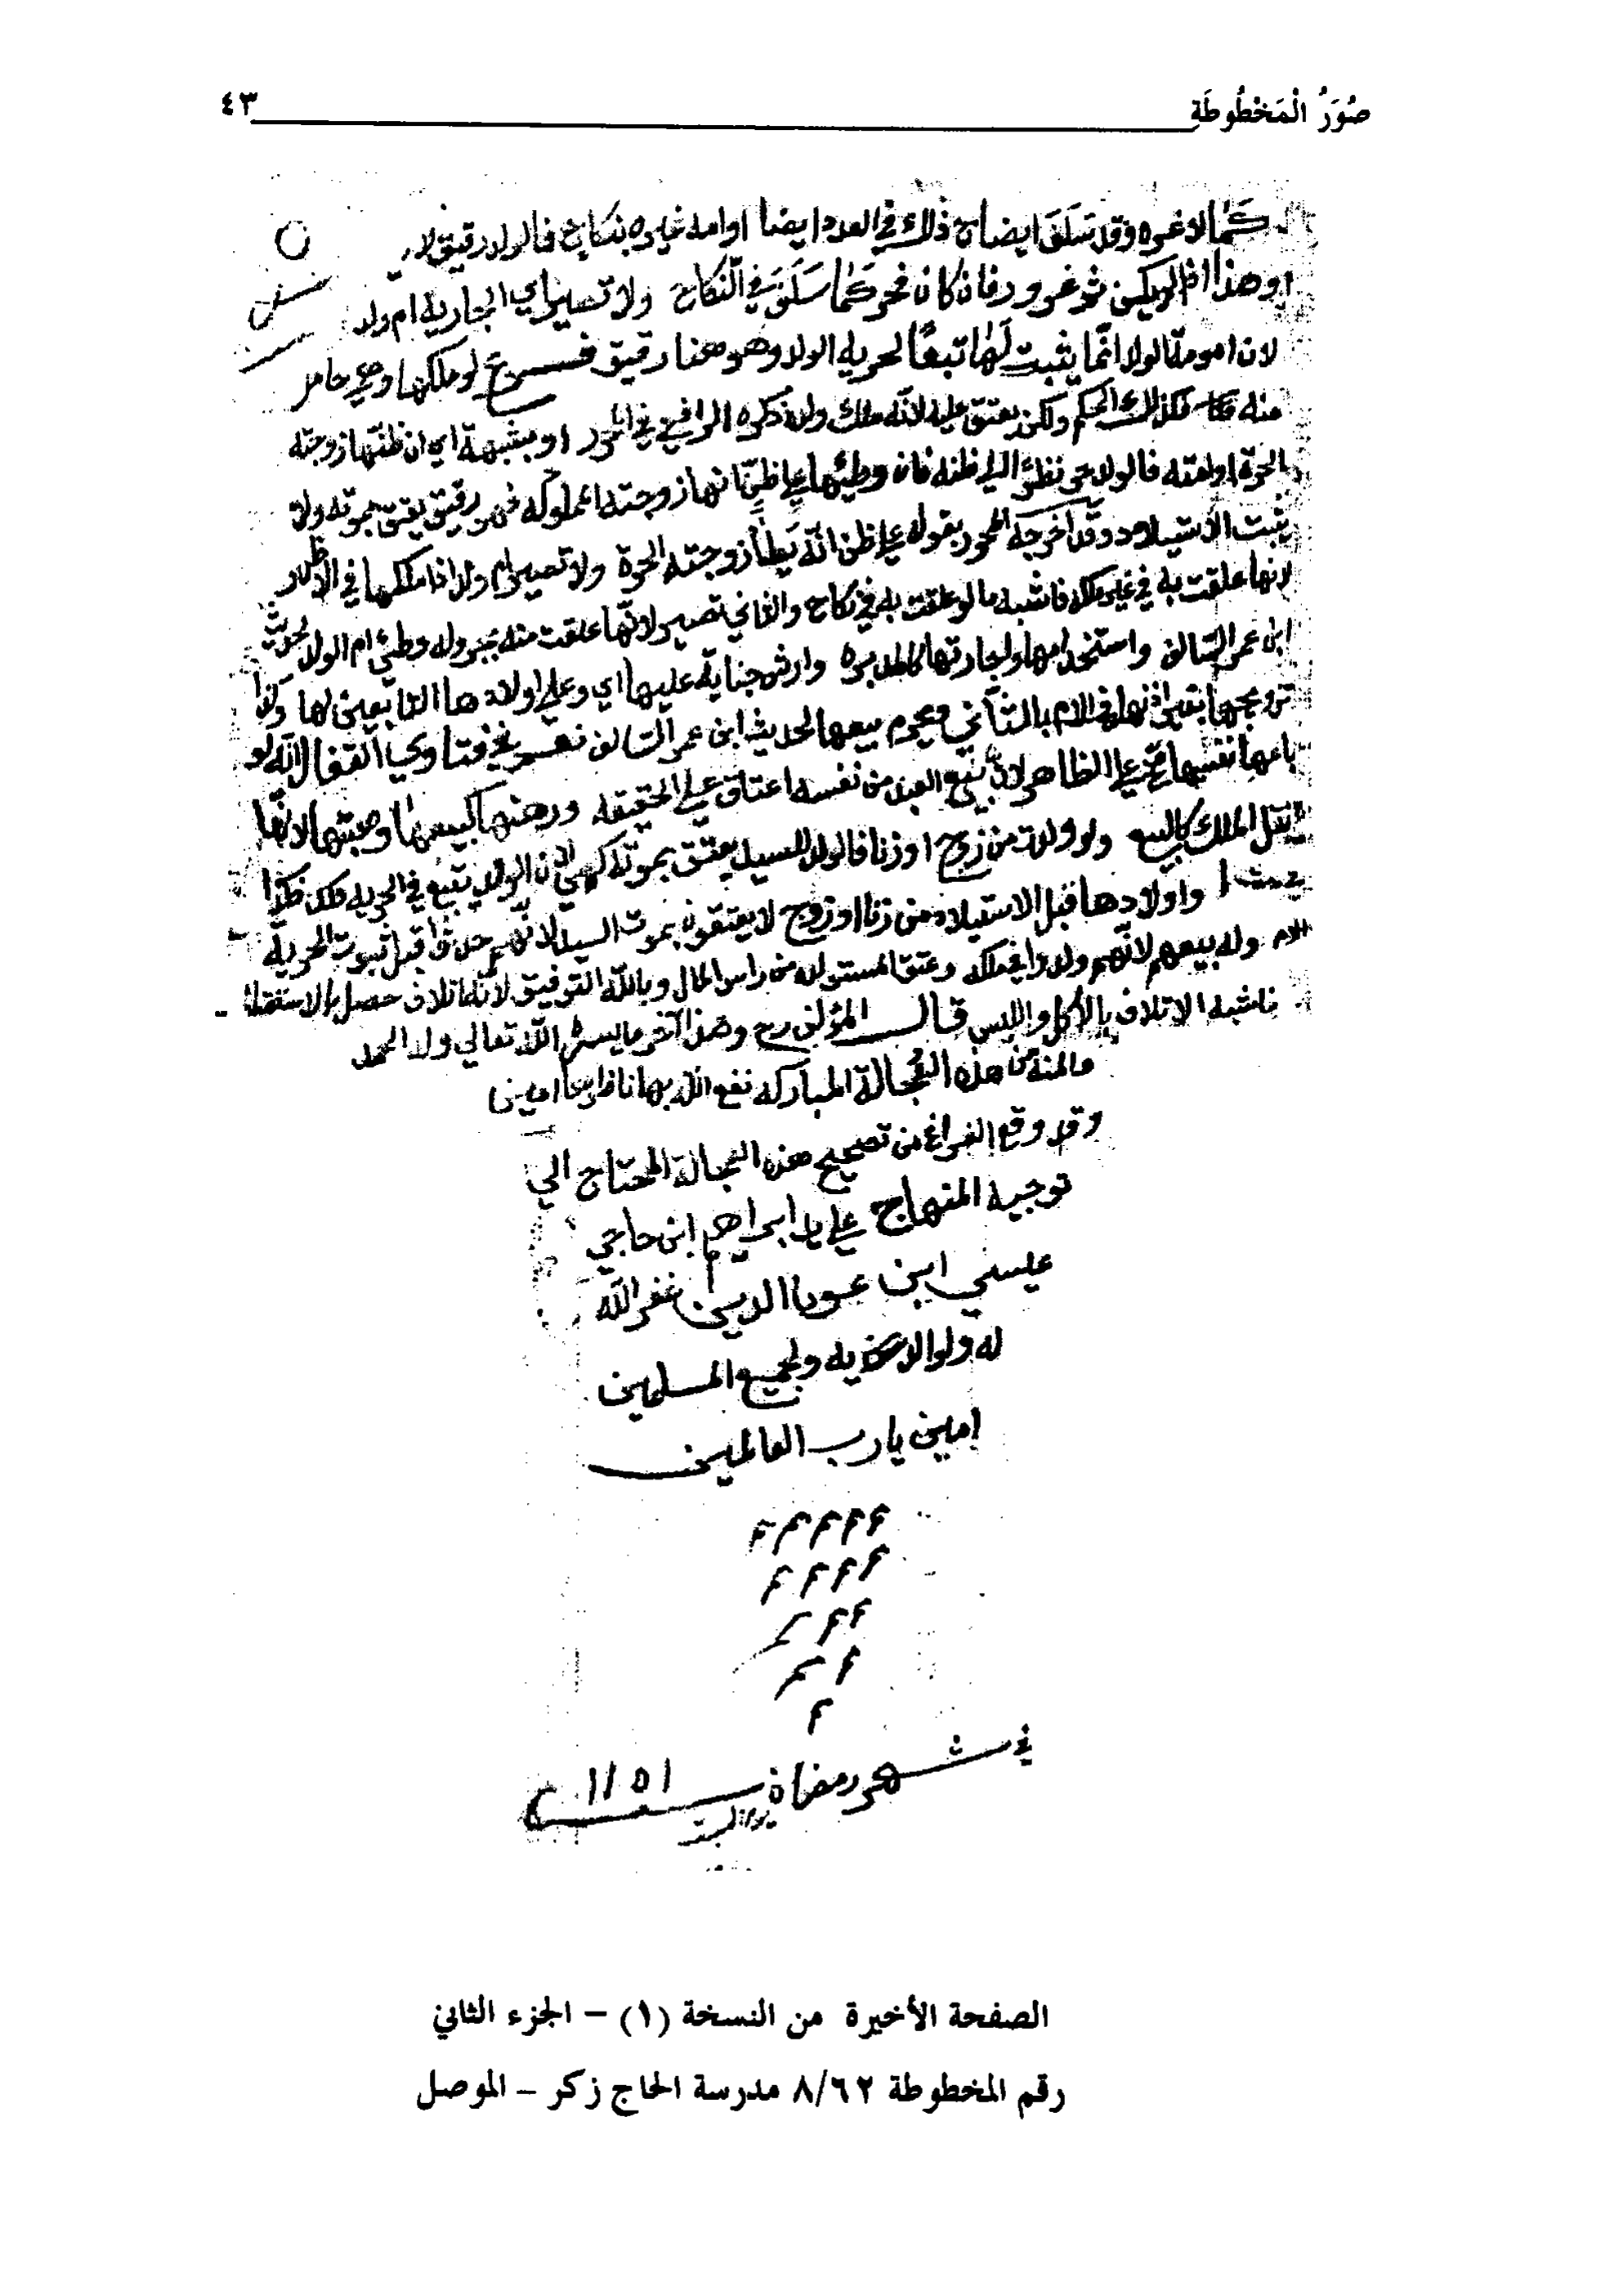 صُوَرُ الْمَخْطُوطَةِ ٤٣
كما لا غيره وقد سلف ايضاح ذلك في العدد ايضا او امة غيره بنكاح فالولد رقيق لا
وهذا اذا لم يكن ثم غرور فان كان فحر كما سلف في النكاح ولا تصير اي الجارية ام ولد
لان امومة الولد انما يثبت لها تبعًا لحرية الولد وهو هنا رقيق فـــرع لو ملكها وهي حامل
منه فكذلك الحكم ولكن يعتق عليه لانه ملك ولده ذكره الرافعي في المحرر او بشبهة اي ان ظنها زوجته
الحرة او امته فالولد حر نظرًا الي ظنه فان وطيها علي ظن انها زوجته المملوكه فهو رقيق يعتق بموته ولا
يثبت الاستيلاد وقد اخرجه المحرر بقوله علي ظن انه يطأ زوجته الحرة ولا تصير ام ولد اذا ملكها في الاظهر
لانها علقت به في غير ملكه فاشبه ما لو علقت به في نكاح والثاني تصير لانها علقت منه بحر وله وطئ ام الولد لحديث
ابن عمر السالف واستخدامها واجارتها كالمدبره وارش جناية عليها اي وعلي اولادها التابعين لها وكذا
تزويجها بغير اذنها في الاصح بالثاني ويحرم بيعها لحديث ابن عمر السالف نعم في فتاوي القفال انه لو
باعها نفسها صح علي الظاهر لان بيع العبد من نفسه اعتاق علي الحقيقه ورهنها كبيعها وهبتها لانها
تنقل الملك كالبيع ولو ولدت من زوج او زنا فالولد للسيد يعتق بموته كهي لان الولد يتبع في الحريه فكذا
واولادها قبل الاستيلاد من زنا او زوج لا يعتقون بموت السيد لانهم حدثوا قبل ثبوت الحرية
للام وله بيعهم لانهم ولدوا في ملكه وعتق المستولده من راس المال وبالله التوفيق لانه اتلاف حصل بالاستمتاع
فاشبه الاتلاف بالاكل واللبس قالـــ المؤلف رح وهذا آخر ما يسره الله تعالي وله الحمد
والمنة من هذه العجالة المباركه نفع الله بها امين
وقد وقع الفراغ من تصحيح هذه العجالة المحتاج الي
توجيه المنهاج علي يد ابراهيم ابن حاجي
عيسي ابن الدين غفر الله
له ولوالديه ولجميع المسلمين
امين يارب العالمين
م م م م م
م م م م
م م م
م م
م
في شهر رمضان سنـــة ١١٥١
الصفحة الأخيرة من النسخة (١) – الجزء الثاني
رقم المخطوطة ٨/٦٢ مدرسة الحاج زكر – الموصل